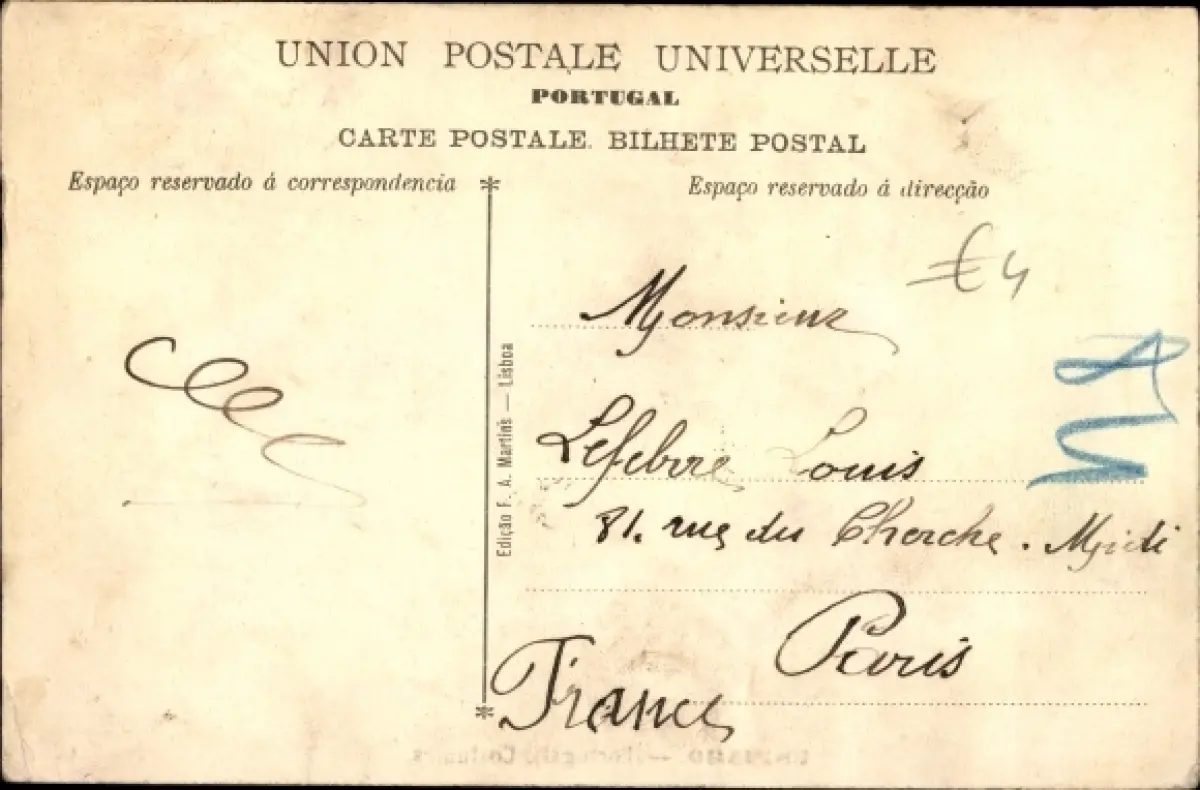 UNION POSTALE UNIVERSELLE
PORTUGAL
CARTE POSTALE. BILHETE POSTAL
Espaço reservado á correspondencia
Espaço reservado á direcção
€4
Edição F. A. Martins — Lisboa
Monsieur
Lefebvre Louis
81. rue du Cherche. Midi
Paris
France